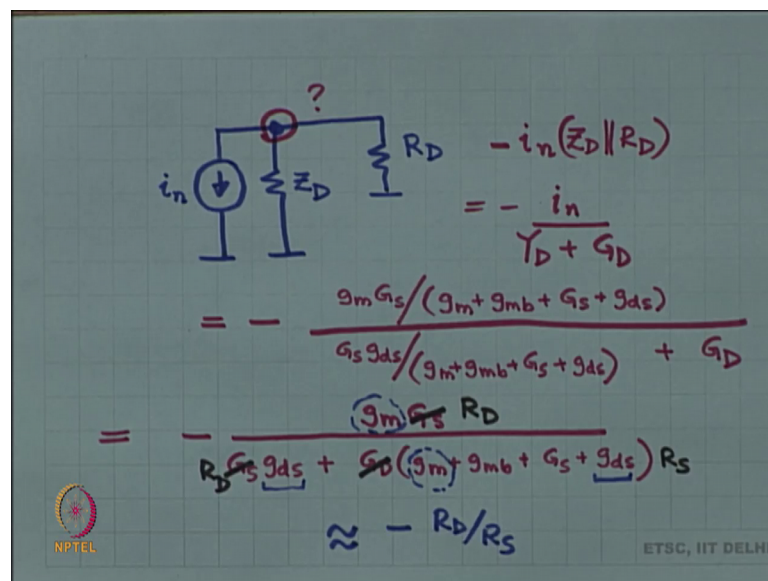 ?
i_n Z_D R_D - i_n (Z_D || R_D)
= - i_n / (Y_D + G_D)
= - (g_m G_s / (g_m + g_mb + G_s + g_ds)) / (G_s g_ds / (g_m + g_mb + G_s + g_ds) + G_D)
= - g_m G_s R_D / (R_D G_s g_ds + G_D (g_m + g_mb + G_s + g_ds) R_S)
≈ - R_D/R_S
NPTEL
ETSC, IIT DELHI